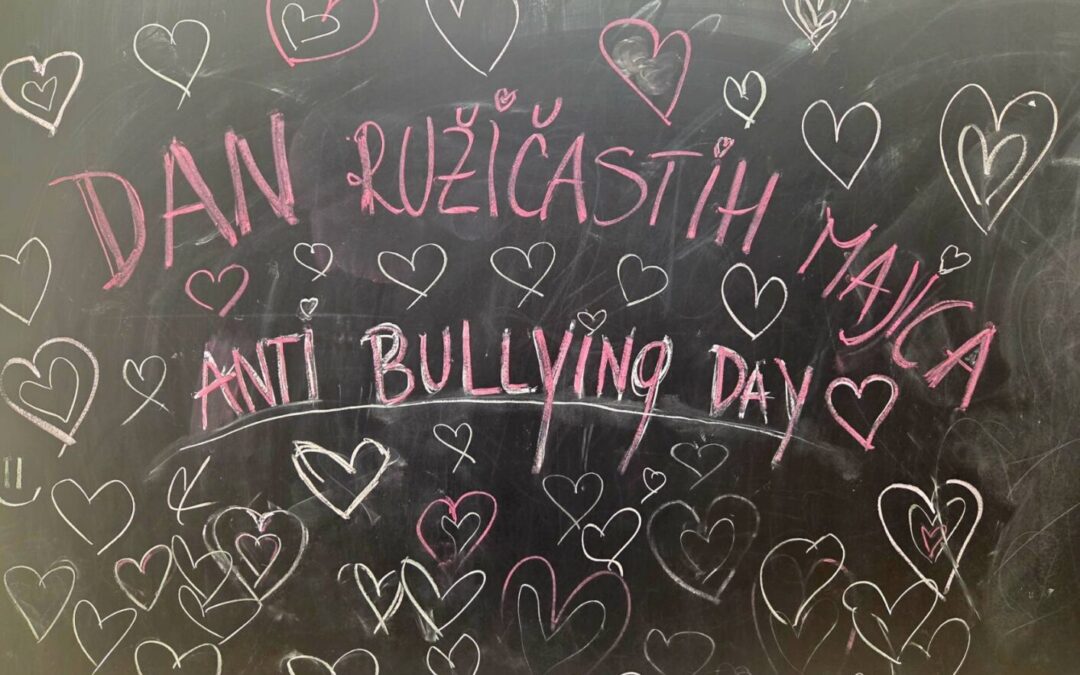 DAN RUŽIČASTIH MAJICA
ANTI BULLYING DAY